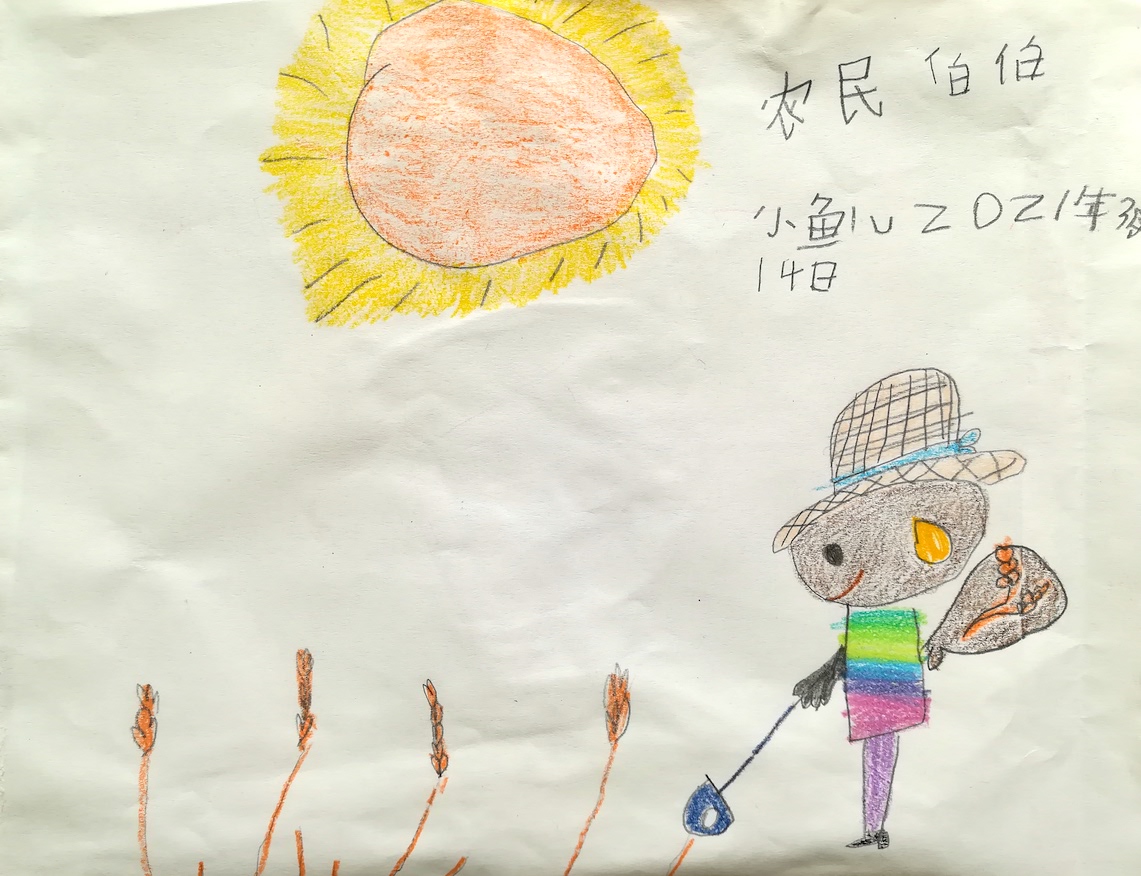 农民伯伯
小鱼iu 2021年
14日